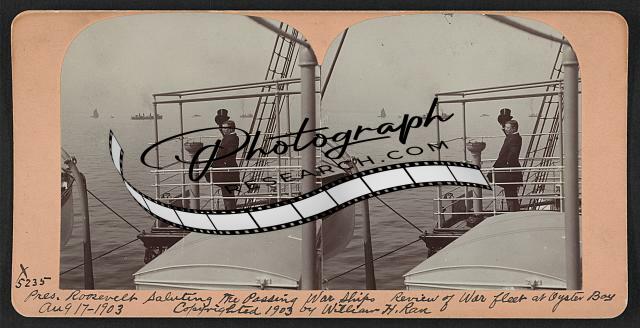 Photograph
RESEARCH.COM
X
5235
Pres. Roosevelt Saluting the Passing War Ships Review of War fleet at Oyster Bay
Aug 17-1903 Copyrighted 1903 by William H. Rau